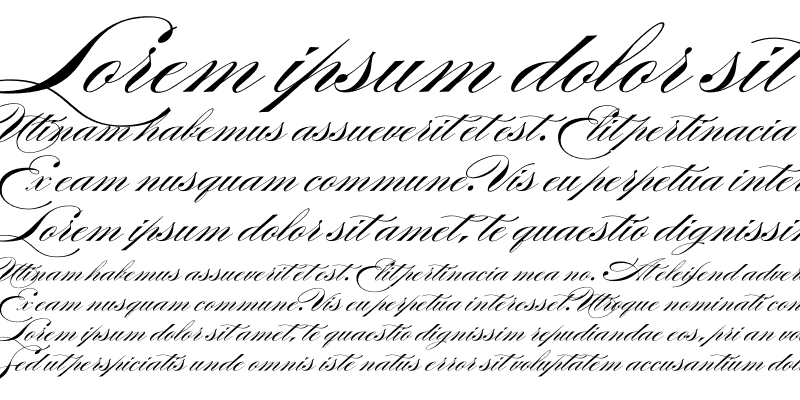 Lorem ipsum dolor sit
Utinam habemus assueverit et est. Elit pertinacia
Ex eam nusquam commune. Vis eu perpetua inter
Lorem ipsum dolor sit amet, te quaestio dignissim
Utinam habemus assueverit et est. Elit pertinacia mea no. At eleifend adver
Ex eam nusquam commune. Vis eu perpetua interesset. Utroque nominati con
Lorem ipsum dolor sit amet, te quaestio dignissim repudiandae eos, pri an vo
Sed ut perspiciatis unde omnis iste natus error sit voluptatem accusantium dolo